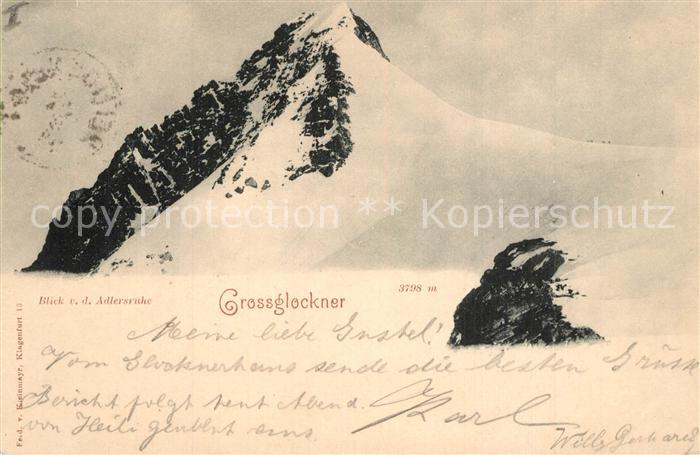 I
copy protection ** Kopierschutz
Blick v. d. Adlersruhe
Grossglockner
3798 m
Meine liebe Gustel!
Vom Glocknerhaus sende die besten Grüsse
Bericht folgt heut Abend.
von Heiligenblut aus.
Karl
Willy
Ferd. v. Kleinmayr, Klagenfurt 13